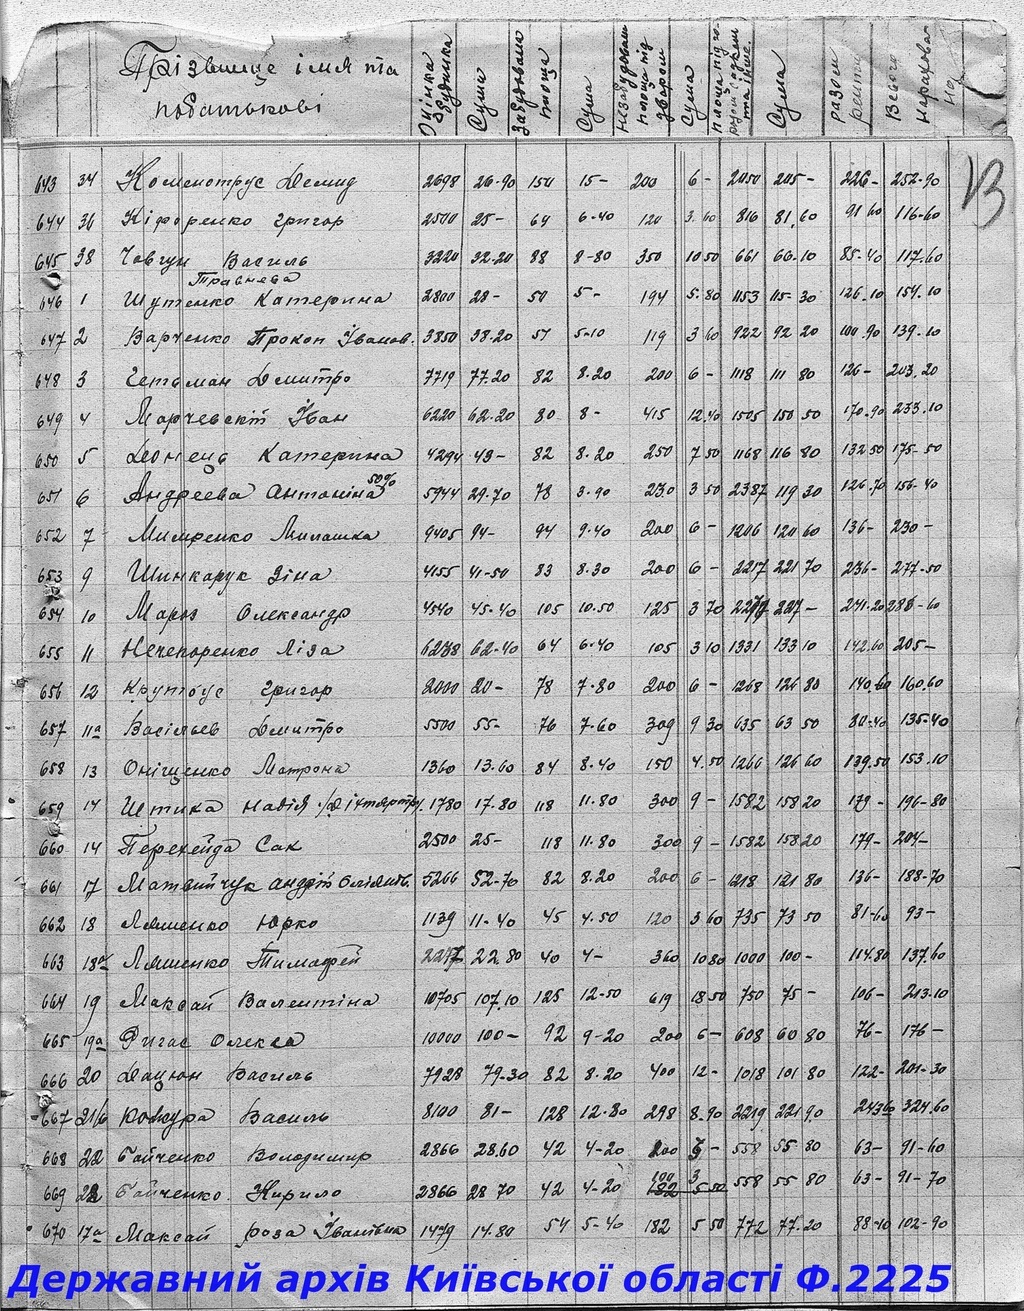 Прізвище імя та
побатькові
Оцінка будинка Сума Забудована площа Сума Незабудована площа під двором Сума площа під го- Сума разом ренти Всього нарахова-
но
13
643 34 Коменотрус Демид 2698 26-90 150 15- 200 6- 2050 205- 226- 252-90
644 36 Кіфоренко Григор 2500 25- 64 6-40 120 3.60 816 81,60 91 60 116-60
645 38 Човгун Василь 3220 32-20 88 8-80 350 10 50 661 66-10 85-40 117.60
Травнева
646 1 Шутенко Катерина 2800 28- 50 5- 194 5.80 1153 115-30 126.10 154.10
647 2 Варченко Прокоп Іванов. 3850 38.20 51 5-10 119 3 60 922 92 20 100.90 139.10
648 3 Гетьман Дмитро 7719 77.20 82 8.20 200 6- 1118 111 80 126- 203.20
649 4 Марчевскій Іван 6220 62-20 80 8- 415 12.40 1505 150 50 170.90 233.10
650 5 Донець Катерина 4294 43- 82 8.20 250 7 50 1168 116 80 132 50 175-50
651 6 Андреева Антоніна 50% 5944 29.70 78 3.90 230 3 50 2387 119 30 126.70 156-40
652 7 Миренко Милашка 9405 94- 94 9.40 200 6- 1206 120 60 136- 230-
653 9 Шинкарук Зіна 4155 41-50 83 8.30 200 6- 2217 221 70 236- 277-50
654 10 Мариз Олександр 4540 45-40 105 10.50 125 3 70 2277 227- 241-20 286-60
655 11 Нечепоренко Ліза 6238 62-40 64 6-40 105 3 10 1331 133 10 142.60 205-
656 12 Крутоус Григор 2000 20- 78 7-80 200 6- 1268 126 80 140.60 160.60
657 11а Васільев Дмитро 5500 55- 76 7-60 309 9 30 635 63 50 80-40 135-40
658 13 Оніщенко Матрона 1360 13.60 84 8-40 150 4.50 1266 126 60 139.50 153.10
659 14 Штика Надія 1780 17.80 118 11.80 300 9- 1582 158 20 179- 196-80
660 14 Перехейда Сак 2500 25- 118 11.80 300 9- 1582 158 20 179- 204-
661 17 Матвийчук Андрій 5266 52-70 82 8.20 200 6- 1218 121 80 136- 188-70
662 18 Ляшенко Юрко 1139 11-40 45 4.50 120 3 60 735 73 50 81-60 93-
663 18а Ляшенко Тимофей 2217 22.80 40 4- 360 10 80 1000 100- 114.80 137.60
664 19 Максай Валентіна 10705 107.10 125 12-50 619 18 50 750 75- 106- 213.10
665 19а Ригас Олекса 10000 100- 92 9-20 200 6- 608 60 80 76- 176-
666 20 Дацюн Василь 7928 79-30 82 8.20 400 12- 1018 101 80 122- 201-30
667 21/6 Ковжура Василь 8100 81- 128 12.80 298 8.90 2219 221 90 243 60 324.60
668 22 Байченко Володимир 2866 28.60 42 4-20 200 6- 558 55 80 63- 91-60
669 22 Байченко Кирило 2866 28 70 42 4-20 100 182 3 5-50 558 55 80 63- 91-70
670 17а Максай роза Іванівна 1479 14.80 54 5-40 182 5 50 772 77.20 88-10 102-90
Державний архів Київської області Ф.2225